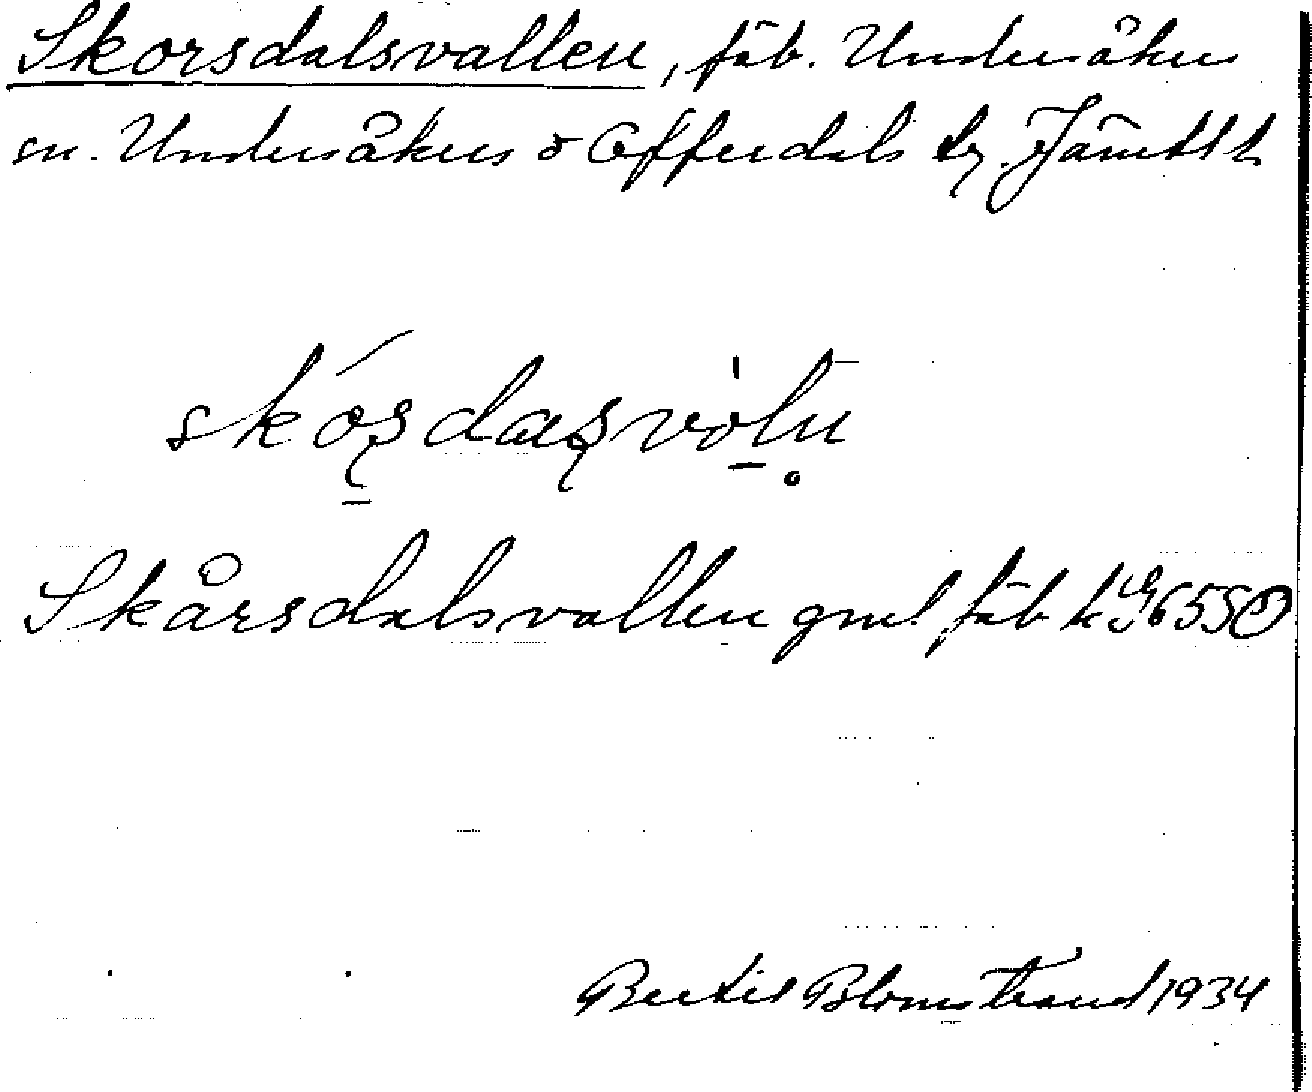 Skorsdalsvallen, fäb. Undersåkers
sn. Undersåkers o Offerdals tg. Jämtl l.
skósdasvòlu
Skårsdalsvallen gml fäb k 655
Bertil Blomstrand 1934